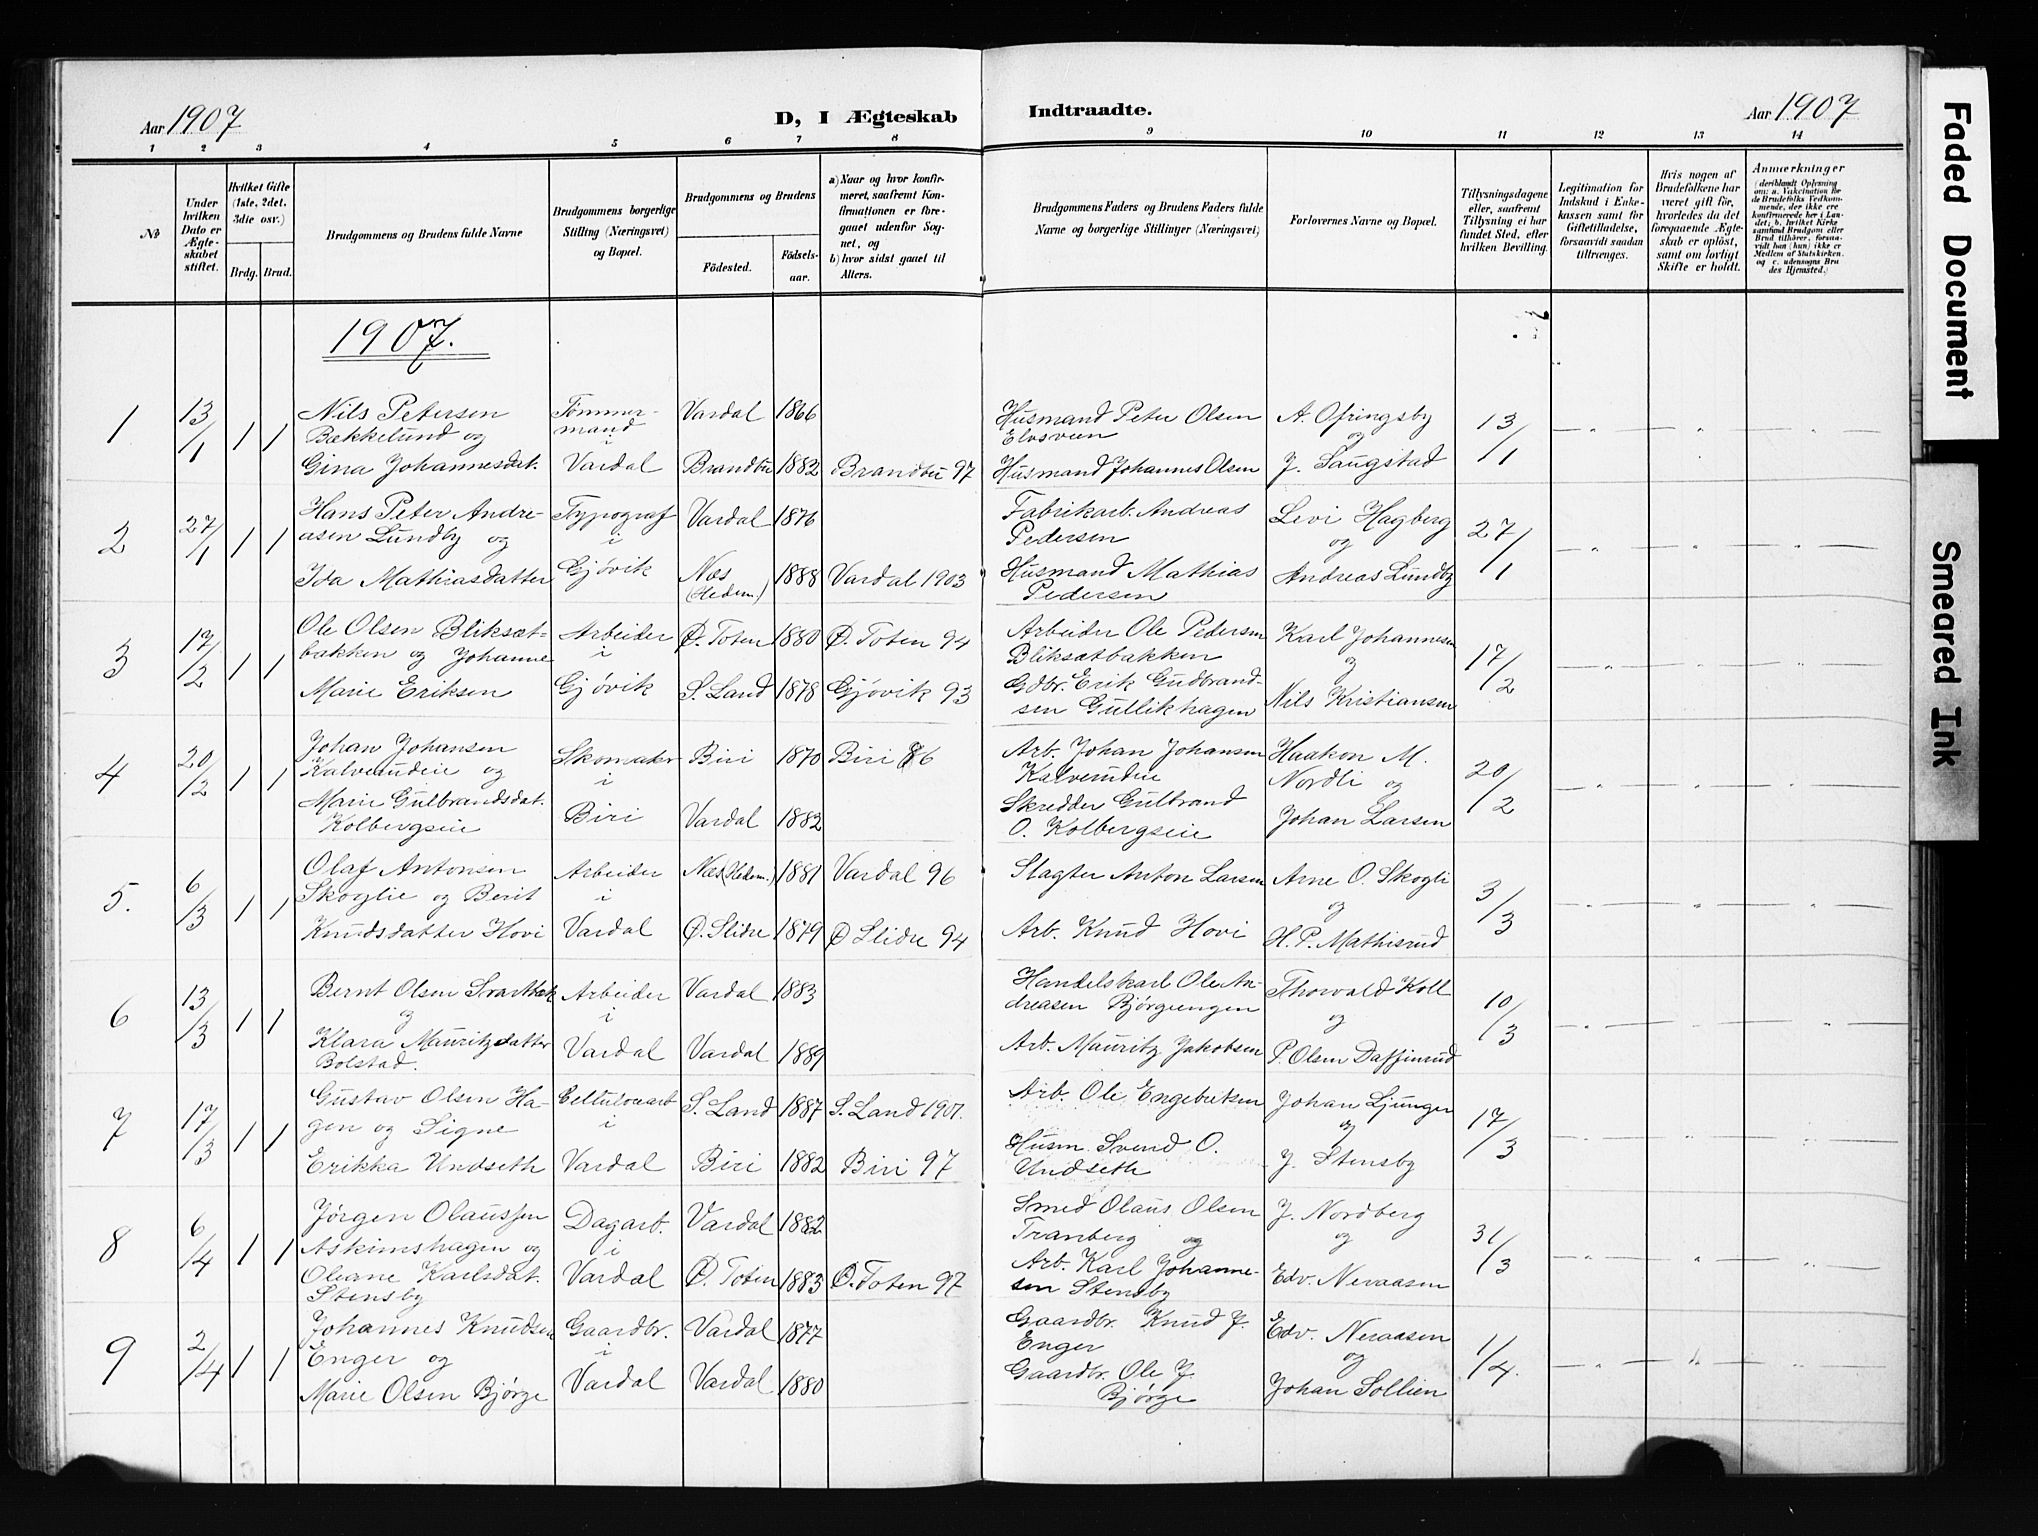 Aar 1907
D, I Ægteskab Indtraadte.
Aar 1907
1 2 3 4 5 6 7 8 9 10 11 12 13 14
No
Under hvilken Dato er Ægteskabet stiftet.
Hvilket Gifte (1ste, 2det, 3die osv.)
Brdg. Brud.
Brudgommens og Brudens fulde Navne
Brudgommens borgerlige Stilling (Næringsvei) og Bopæl.
Brudgommens og Brudens
Födested.
Födselsaar.
a) Naar og hvor konfirmeret, saafremt Konfirmationen er foregaaet udenfor Sognet, og
b) hvor sidst gaaet til Alters.
Brudgommens Faders og Brudens Faders fulde Navne og borgerlige Stillinger (Næringsvei)
Forlovernes Navne og Bopæl.
Tillysningsdagene eller, saafremt Tillysning ei har fundet Sted, efter hvilken Bevilling.
Legitimation for Indskud i Enkekassen samt for Giftetilladelse, forsaavidt saadan tiltrænges.
Hvis nogen af Brudefolkene har været gift før, hvorledes da det foregaaende Ægteskab er opløst, samt om lovligt Skifte er holdt.
Anmerkninger
(deriblandt Oplysning om: a. Vakcination for de Brudefolks Vedkommende, der ikke ere konfirmerede her i Landet; b. hvilket Kirkesamfund Brudgom eller Brud tilhører, forsaavidt han (hun) ikke er Medlem af Statskirken, og c. udensogns Brudes Hjemsted.)
1907.
1 13/1 1 1
Nils Petersen
Bækkelund og
Gina Johannesdat.
Tømmermand
i
Vardal
Vardal 1866
Brandbu 1882 Brandbu 97
Husmand Peter Olsen
Elvsveen
Husmand Johannes Olsen
A. Ofringsby
og
J. Saugstad
13/1
2 27/1 1 1
Hans Peter Andreasen Lundby og
Ida Mathiasdatter
Typograf
i
Gjøvik
Vardal 1876
Næs (Hedem.) 1888 Vardal 1903
Fabrikarb. Andreas
Pedersen
Husmand Mathias
Pedersen
Levi Hagberg
og
Andreas Lundby
27/1
3 17/2 1 1
Ole Olsen Bliksætbakken og Johanne
Marie Eriksen
Arbeider
i
Gjøvik
Ø. Toten 1880 Ø. Toten 94
S. Land 1878 Gjøvik 93
Arbeider Ole Pedersen
Bliksætbakken
Gdbr. Erik Gudbrandsen Gullikhagen
Karl Johannesen
og
Nils Kristiansen
17/2
4 20/2 1 1
Johan Johansen
Kalverudeie og
Marie Gulbrandsdat.
Kolbergseie
Skomaker
i
Biri
Biri 1870 Biri 86
Vardal 1882
Arb. Johan Johansen
Kalverudeie
Skredder Gulbrand
O. Kolbergseie
Haakon M.
Nordli og
Johan Larsen
20/2
5. 6/3 1 1
Olaf Antonsen
Skoglie og Berit
Knudsdatter Hovi
Arbeider
i
Vardal
Næs (Hedem.) 1881 Vardal 96
Ø. Slidre 1879 Ø Slidre 94
Slagter Anton Larsen
Arb. Knud Hovi
Arne O. Skogli
og
H. P. Mathisrud
3/3
6 13/3 1 1
Bernt Olsen Svartbæk
og
Klara Mauritzdatter
Bolstad.
Arbeider
i
Vardal
Vardal 1883
Vardal 1889
Handelskarl Ole Andreasen Bjørgeengen
Arb. Mauritz Jakobsen
Thorvald Koll
og
P. Olsen Daffinrud
10/3
7 17/3 1 1
Gustav Olsen Hagen og Signe
Erikka Undseth
Cellulosearb
i
Vardal
S. Land 1887 S. Land 1901.
Biri 1882 Biri 97
Arb. Ole Engebretsen
Husm. Svend O.
Undseth
Johan Ljunger
og
J. Stensby
17/3
8 6/4 1 1
Jørgen Olaussen
Askimshagen og
Oleane Karlsdat.
Stensby
Dagarb.
i
Vardal
Vardal 1882
Ø. Toten 1883 Ø. Toten 97
Smed Olaus Olsen
Tranberg og
Arb. Karl Johannesen Stensby
J. Nordberg
og
Edv. Neraasen
31/3
9 2/4 1 1
Johannes Knudsen
Enger og
Marie Olsen Bjørge
Gaardbr.
i
Vardal
Vardal 1877
Vardal 1880
Gaardbr. Knud J.
Enger
Gaardbr. Ole J.
Bjørge
Edv. Neraasen
og
Johan Sollien
1/4.
Faded Document
Smeared Ink